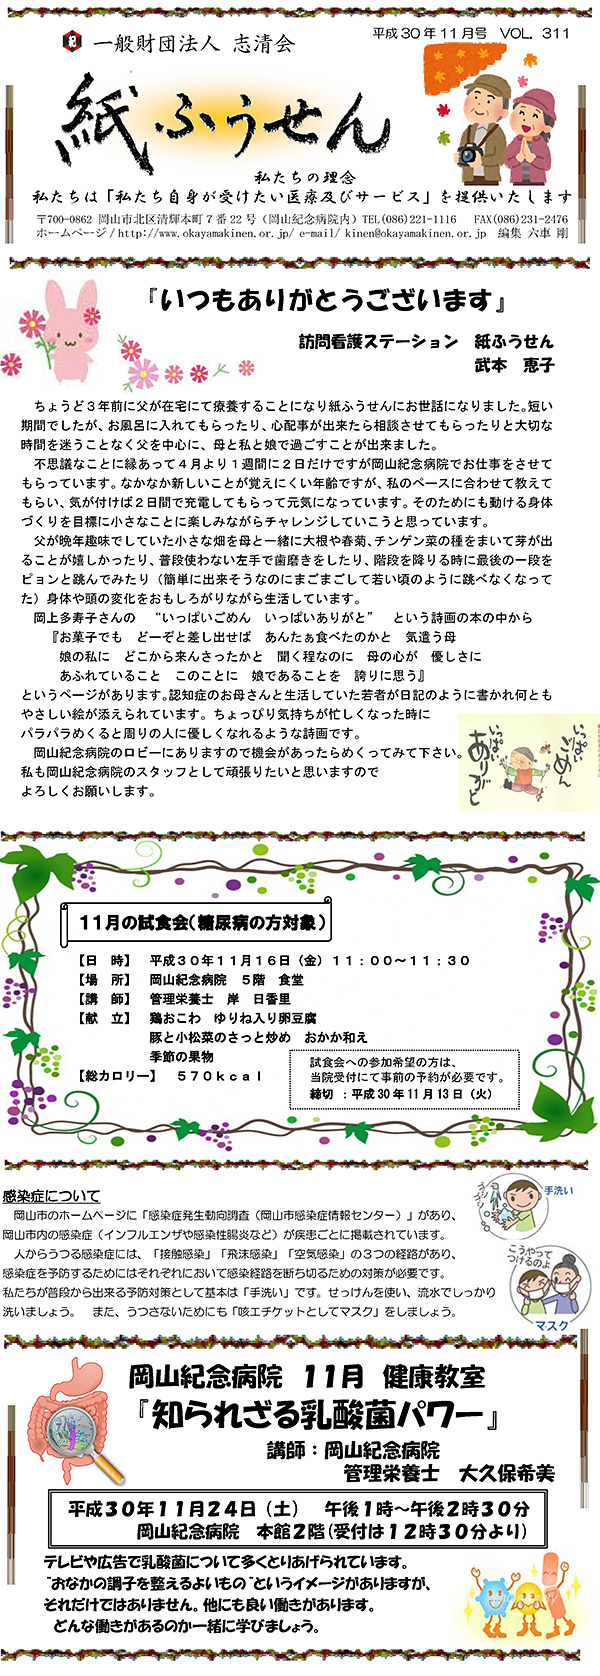 一般財団法人 志清会
平成30年11月号 VOL. 311
紙ふうせん
私たちの理念
私たちは「私たち自身が受けたい医療及びサービス」を提供いたします
〒700-0862 岡山市北区清輝本町7番22号(岡山紀念病院内)TEL(086)221-1116 FAX(086)231-2476
ホームページ/http://www.okayamakinen.or.jp/ e-mail/ kinen@okayamakinen.or.jp 編集 六車 剛
『いつもありがとうございます』
訪問看護ステーション 紙ふうせん
武本 恵子
ちょうど3年前に父が在宅にて療養することになり紙ふうせんにお世話になりました。短い
期間でしたが、お風呂に入れてもらったり、心配事が出来たら相談させてもらったりと大切な
時間を迷うことなく父を中心に、母と私と娘で過ごすことが出来ました。
不思議なことに縁あって4月より1週間に2日だけですが岡山紀念病院でお仕事をさせて
もらっています。なかなか新しいことが覚えにくい年齢ですが、私のペースに合わせて教えて
もらい、気が付けば2日間で充電してもらって元気になっています。そのためにも動ける身体
づくりを目標に小さなことに楽しみながらチャレンジしていこうと思っています。
父が晩年趣味でしていた小さな畑を母と一緒に大根や春菊、チンゲン菜の種をまいて芽が出
ることが嬉しかったり、普段使わない左手で歯磨きをしたり、階段を降りる時に最後の一段を
ピョンと跳んでみたり(簡単に出来そうなのにまごまごして若い頃のように跳べなくなって
た)身体や頭の変化をおもしろがりながら生活しています。
岡上多寿子さんの “いっぱいごめん いっぱいありがと” という詩画の本の中から
『お菓子でも どーぞと差し出せば あんたぁ食べたのかと 気遣う母
娘の私に どこから来んさったかと 聞く程なのに 母の心が 優しさに
あふれていること このことに 娘であることを 誇りに思う』
というページがあります。認知症のお母さんと生活していた若者が日記のように書かれ何とも
やさしい絵が添えられています。ちょっぴり気持ちが忙しくなった時に
パラパラめくると周りの人に優しくなれるような詩画です。
岡山紀念病院のロビーにありますので機会があったらめくってみて下さい。
私も岡山紀念病院のスタッフとして頑張りたいと思いますので
よろしくお願いします。
いっぱい
ごめん
いっぱい
ありがと
11月の試食会(糖尿病の方対象)
【日 時】 平成30年11月16日(金)11:00~11:30
【場 所】 岡山紀念病院 5階 食堂
【講 師】 管理栄養士 岸 日香里
【献 立】 鶏おこわ ゆりね入り卵豆腐
豚と小松菜のさっと炒め おかか和え
季節の果物
【総カロリー】 570kcal
試食会への参加希望の方は、
当院受付にて事前の予約が必要です。
締切 :平成30年11月13日(火)
感染症について
岡山市のホームページに「感染症発生動向調査(岡山市感染症情報センター)」があり、
岡山市内の感染症(インフルエンザや感染性腸炎など)が疾患ごとに掲載されています。
人からうつる感染症には、「接触感染」「飛沫感染」「空気感染」の3つの経路があり、
感染症を予防するためにはそれぞれにおいて感染経路を断ち切るための対策が必要です。
私たちが普段から出来る予防対策として基本は「手洗い」です。せっけんを使い、流水でしっかり
洗いましょう。 また、うつさないためにも「咳エチケットとしてマスク」をしましょう。
ゴシゴシ
手洗い
こうやって
つけるのよ
マスク
岡山紀念病院 11月 健康教室
『知られざる乳酸菌パワー』
講師:岡山紀念病院
管理栄養士 大久保希美
平成30年11月24日(土) 午後1時~午後2時30分
岡山紀念病院 本館2階(受付は12時30分より)
テレビや広告で乳酸菌について多くとりあげられています。
“おなかの調子を整えるよいもの”というイメージがありますが、
それだけではありません。他にも良い働きがあります。
どんな働きがあるのか一緒に学びましょう。